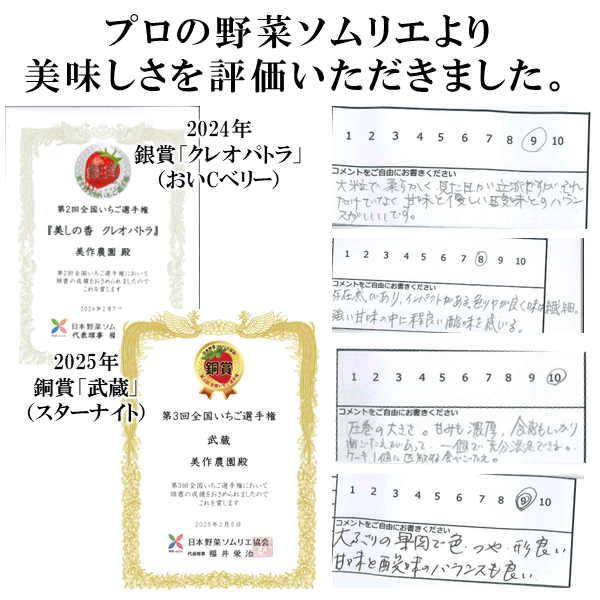 プロの野菜ソムリエより
美味しさを評価いただきました。
2024年
銀賞「クレオパトラ」
（おいCベリー）
銀賞
第2回全国いちご選手権
『美しの香 クレオパトラ』
美作農園 殿
第2回全国いちご選手権において
頭書の成績をおさめられましたので
これを賞します
2024年2月7
日本野菜ソム
代表理事 福
2025年
銅賞「武蔵」
（スターナイト）
銅賞
第3回全国いちご選手権
武蔵
美作農園殿
第3回全国いちご選手権において
頭書の成績をおさめられましたので
これを賞します
2025年2月5日
日本野菜ソムリエ協会
代表理事 福井栄治
1 2 3 4 5 6 7 8 9 10
コメントをご自由にお書きください
大粒で柔らかく見た目が立派ですがそれ
だけでなく甘味と優しい酸味とのバラン
スがいいです。
1 2 3 4 5 6 7 8 9 10
コメントをご自由にお書きください
存在感があり、インパクトがある。色ツヤが良く味は繊細。
強い甘味の中に程良い酸味を感じる。
1 2 3 4 5 6 7 8 9 10
コメントをご自由にお書きください
圧巻の大きさ。甘みも濃厚、食感もしっかり
歯ごたえがあって、一個で充分満足できる。
ケーキ1個に匹敵する食べごたえ。
1 2 3 4 5 6 7 8 9 10
コメントをご自由にお書きください
大ぶりの果肉で色・つや・形良い
甘味と酸味のバランスも良い